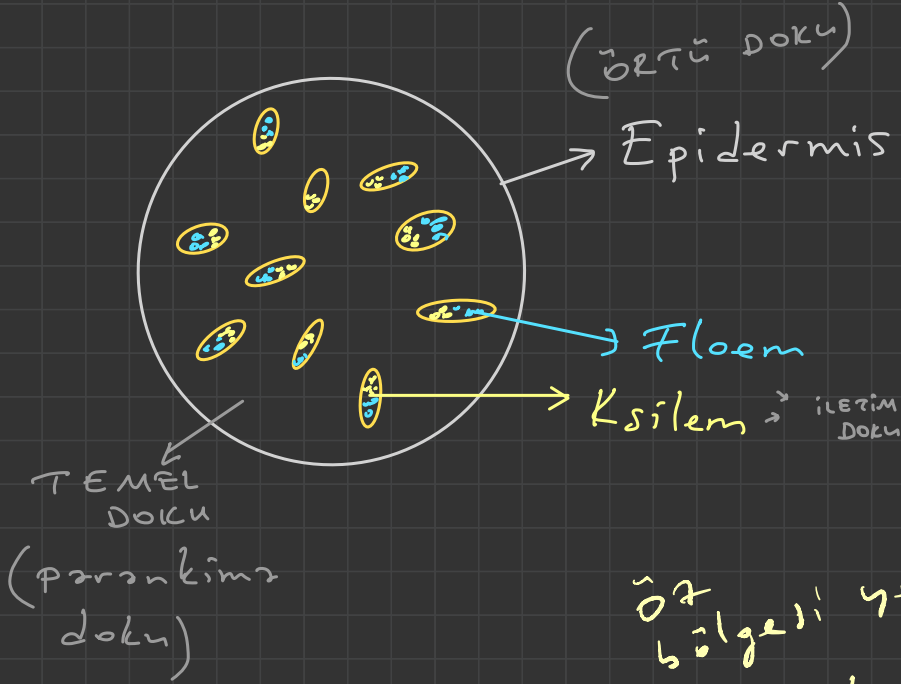 (ÖRTÜ DOKU)
Epidermis
Floem
Ksilem
İLETİM
DOKU
TEMEL
DOKU
(parankima
doku)
öz
bölgesi